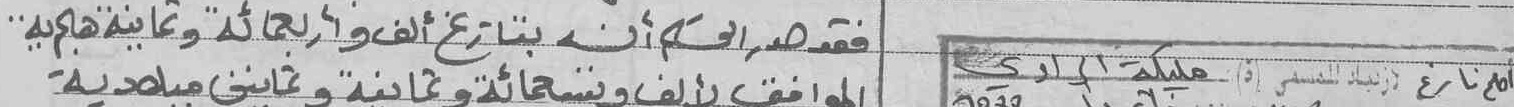 فقد صدر الحكم أنه بتاريخ ألف وأربعمائة وثمانية هجرية
الموافق لألف وتسعمائة وثمانية وثمانين ميلادية
ازدياد المسمى (ة) مليكة